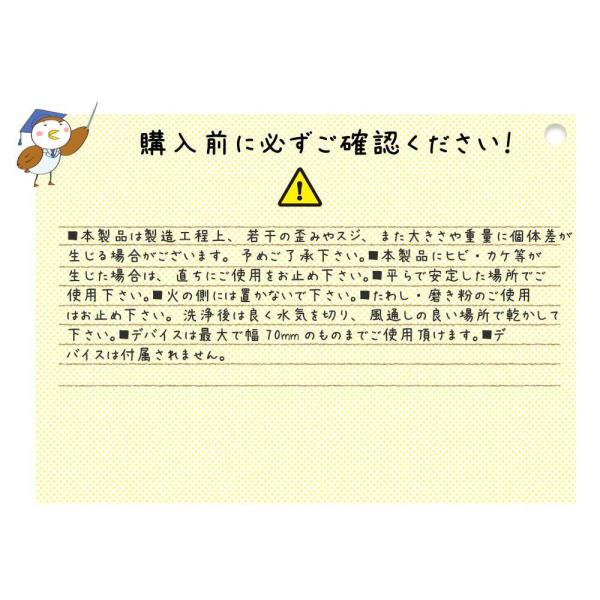 購入前に必ずご確認ください!
■本製品は製造工程上、若干の歪みやスジ、また大きさや重量に個体差が
生じる場合がございます。予めご了承下さい。■本製品にヒビ・カケ等が
生じた場合は、直ちにご使用をお止め下さい。■平らで安定した場所でご
使用下さい。■火の側には置かないで下さい。■たわし・磨き粉のご使用
はお止め下さい。洗浄後は良く水気を切り、風通しの良い場所で乾かして
下さい。■デバイスは最大で幅70mmのものまでご使用頂けます。■デ
バイスは付属されません。